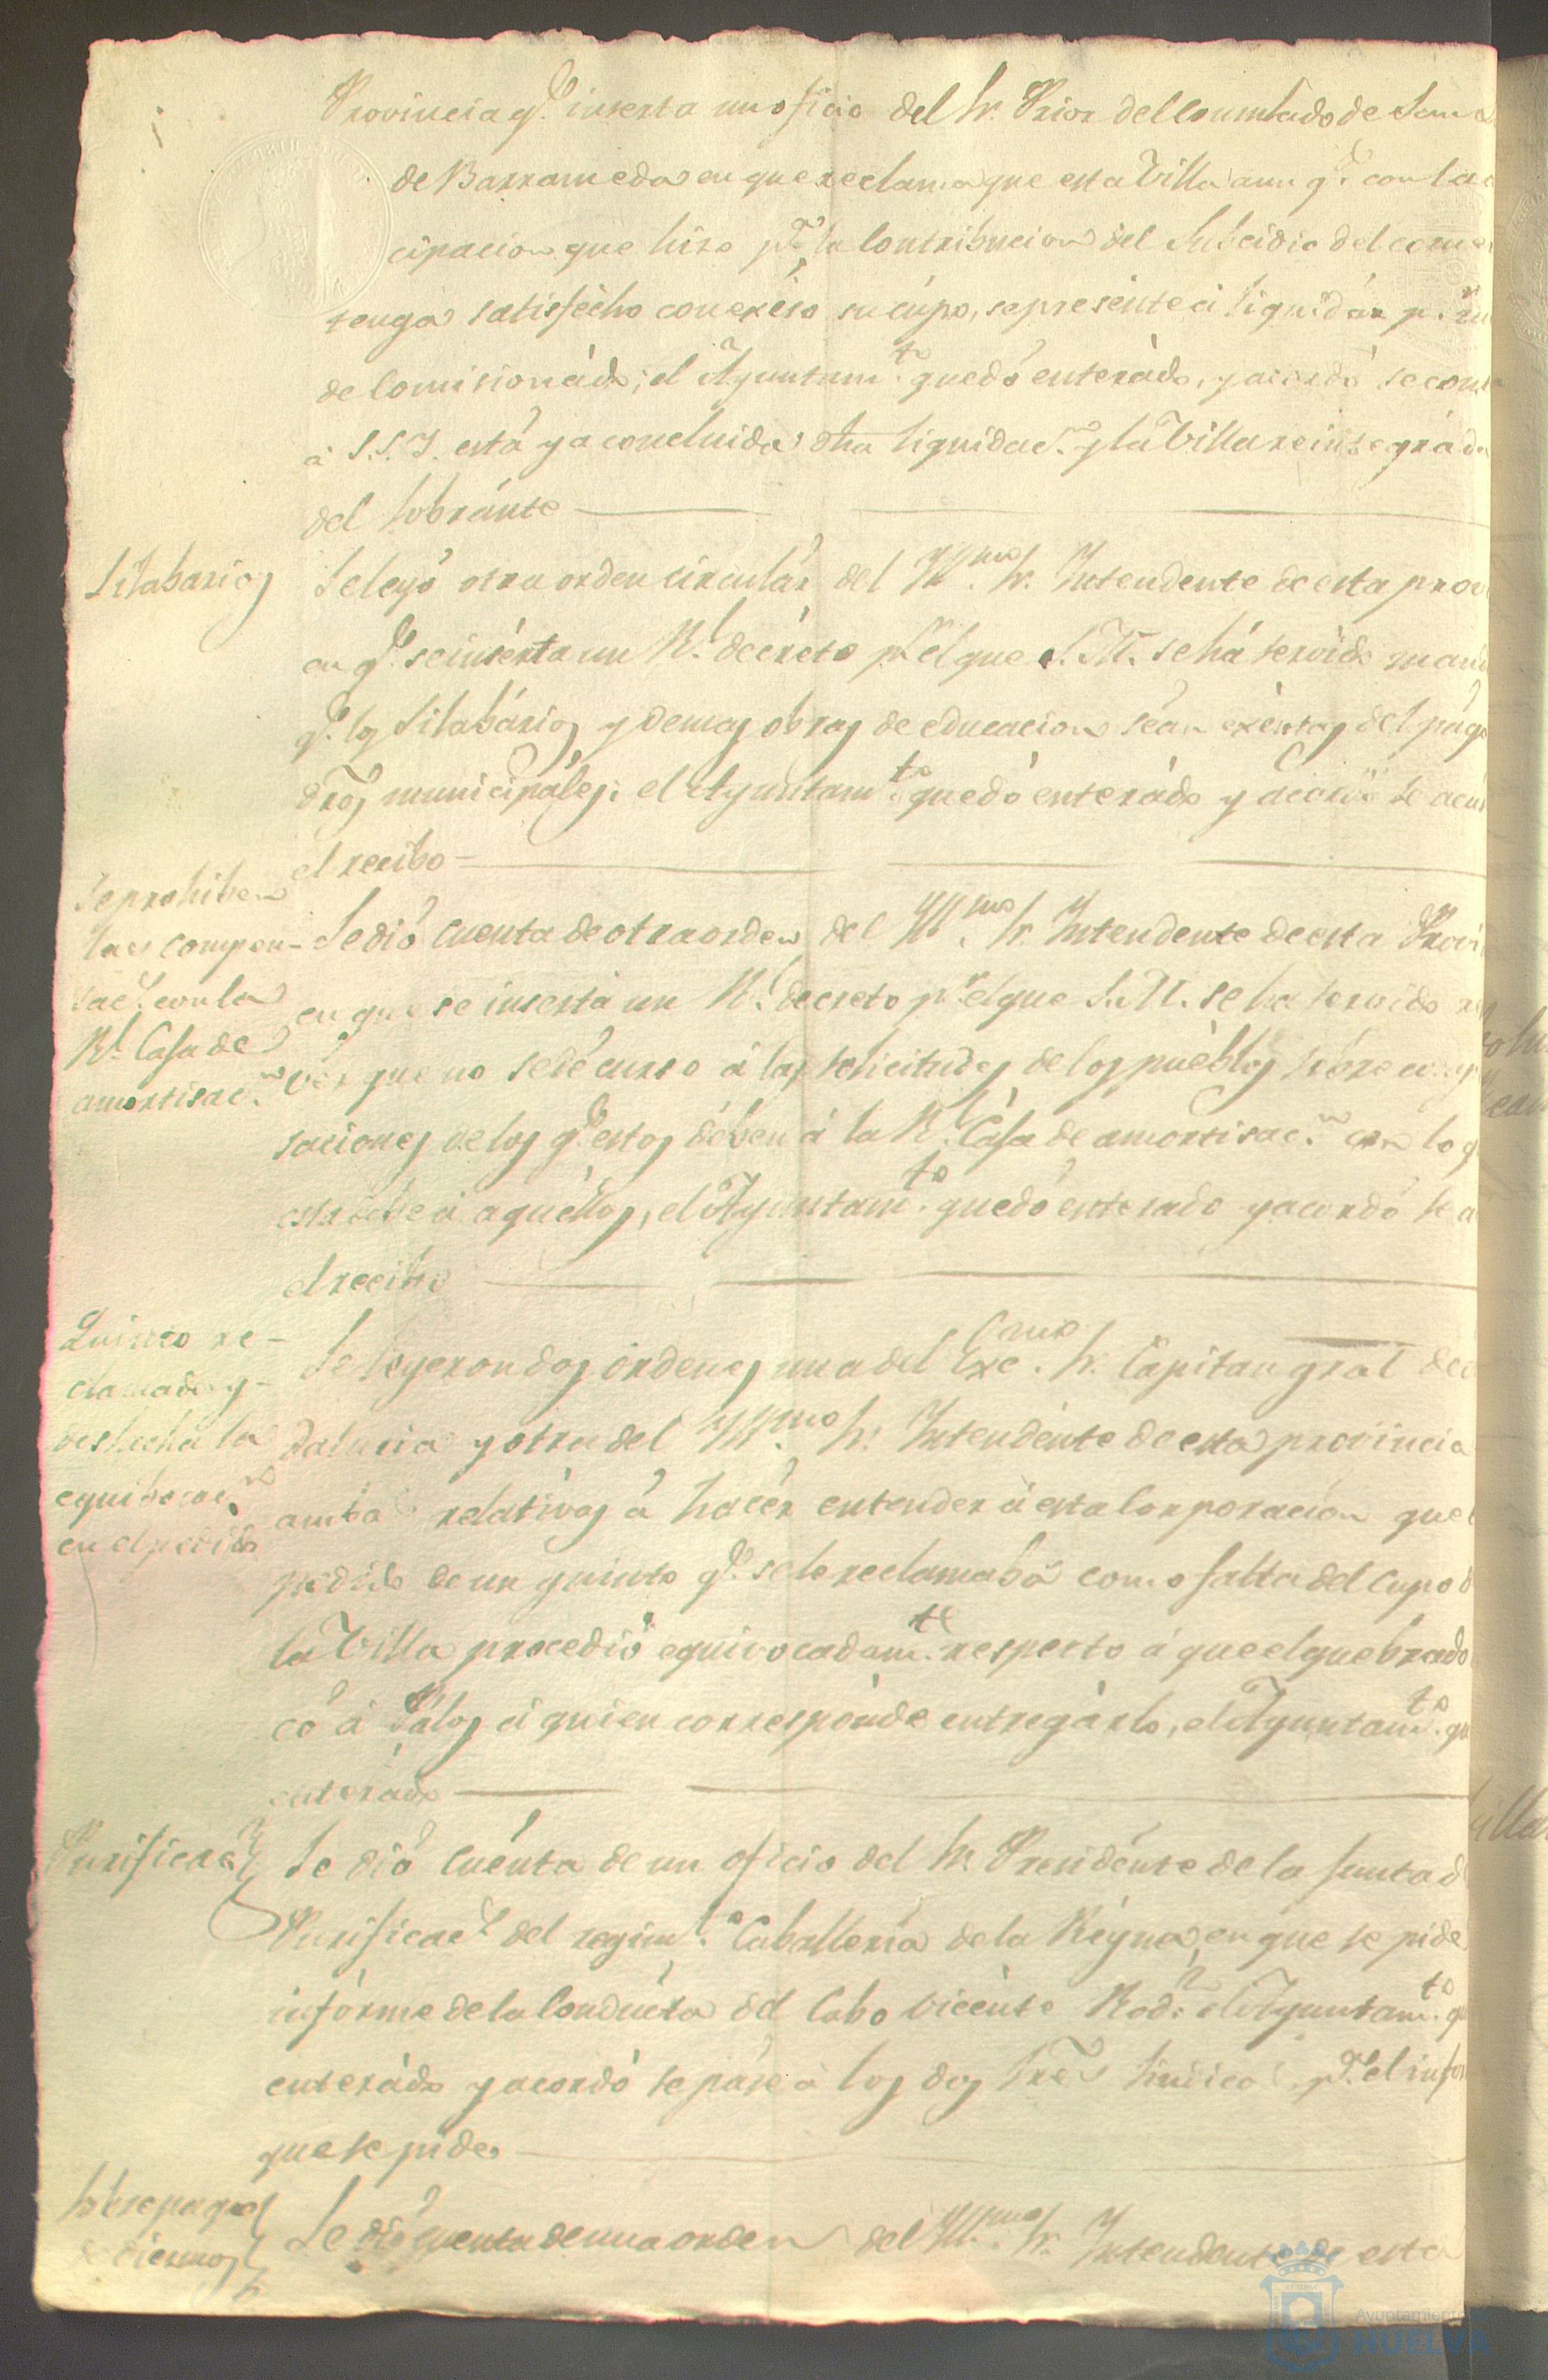 Provincia q.e inserta un oficio del Sr. Prior del Consulado de San
de Barrameda en que reclama que esta Villa aun q.e con la
cipacion que hizo p.a la Contribucion del Subcidio del comer
tenga satisfecho con exéso su cúpo, se presente á liquidár p.r
de Comisionádo; el Ayuntam.to quedó enterádo, y acordó se con
á S.S.Y. está ya concluida dha liquidac.n y la Villa reintegráda
del Sobránte
Silabarios
Se leyó otra orden circulár del Yll.mo Sr. Yntendente de esta prov
en q.e se insérta un R.l decréto p.r el que S.M. se há servido man
q.e los Silabários y demas obras de educacion séan exéntas del págo
dros municipáles: el Ayuntam.to quedó enterádo y acordó se acu
el recibo
Se prohiben
las compen-
sac.s con la
R.l Casa de
amortisac.n
Se dió cuenta de otra orden del Yll.mo Sr. Yntendente de esta Provi
en que se inserta un R.l decreto p.r el que S.M. se ha servido
vér que no se dé curso á las solicitudes de los puéblos sóbre
saciones de los q.e estos dében á la R.l Cása de amortisac.n con lo q
esta debe á aquéllos, el Ayuntam.to quedó enterado y acordó se a
el recibo
Quinto re-
clamado y
deshecha la
equibocac.n
en el pedido
Se leyeron dos órdenes una del Exc.mo Sr. Capitan gral de
dalucia y otra del Yll.mo Sr. Yntendénte de esta provincia
ambas relatívas á hacér entender á esta Corporacion que
pedido de un quinto q.e se le reclamabá como falta del Cupo d
la Villa procedió equivocadam.te respecto á que el quebrado
có á Pálos á quien corresponde entregárlo, el Ayuntam.to qu
enterádo
Purificac.s
Se dió cuénta de un oficio del Sr. Presidénte de la Junta d
Purificac.s del regim.to Caballería de la Reyna, en que se pide
infórme de la Condúcta del Cabo Vicénte Rod.z el Ayuntam.to qu
enterádo y acordó se páse á los dos Sres Síndicos p.a el infor
que se pide
Sobre pagos
de diezmos
Se dió cuenta de una orden del Yll.mo Sr. Yntendente de esta
Ayuntamiento
HUELVA